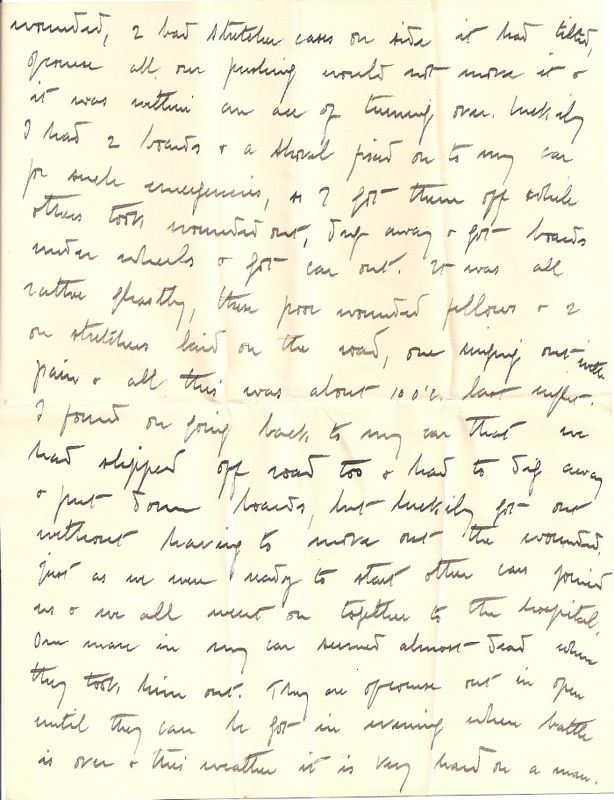 wounded, 2 bad stretcher cases on side it had tilted,
ofcourse all our pushing would not move it &
it was within an ace of turning over. Luckily
I had 2 boards & a shovel fixed on to my car
for such emergencies, so I got them off while
others took wounded out, dug away & got boards
under wheels & got car out. It was all
rather ghastly, these poor wounded fellows & 2
on stretchers laid on the road, one singing out with
pain & all this was about 10 o'c. last night.
I found on going back to my car that we
had slipped off road too & had to dig away
& put down boards, but luckily got out
without having to move out the wounded.
Just as we were ready to start other cars joined
us & we all went on together to the hospital.
One man in my car seemed almost dead when
they took him out. They are ofcourse out in open
until they can be got in evening when battle
is over & this weather it is very hard on a man.